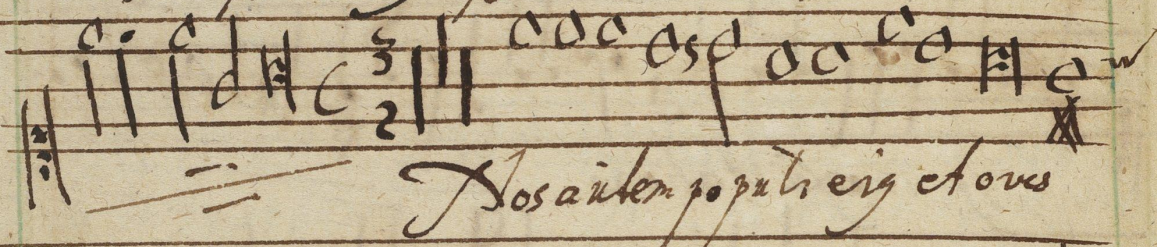 3
2
Nos autem populi eiq et oves